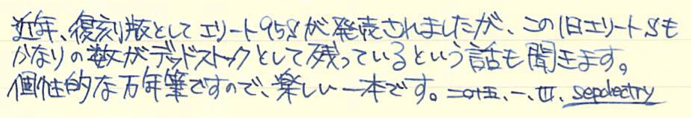 近年、復刻版としてエリート95Sが発売されましたが、この旧エリートSも
かなりの数がデッドストックとして残っているという話も聞きます。
個性的な万年筆ですので、楽しい一本です。二〇十五、一、廿、sepolectry